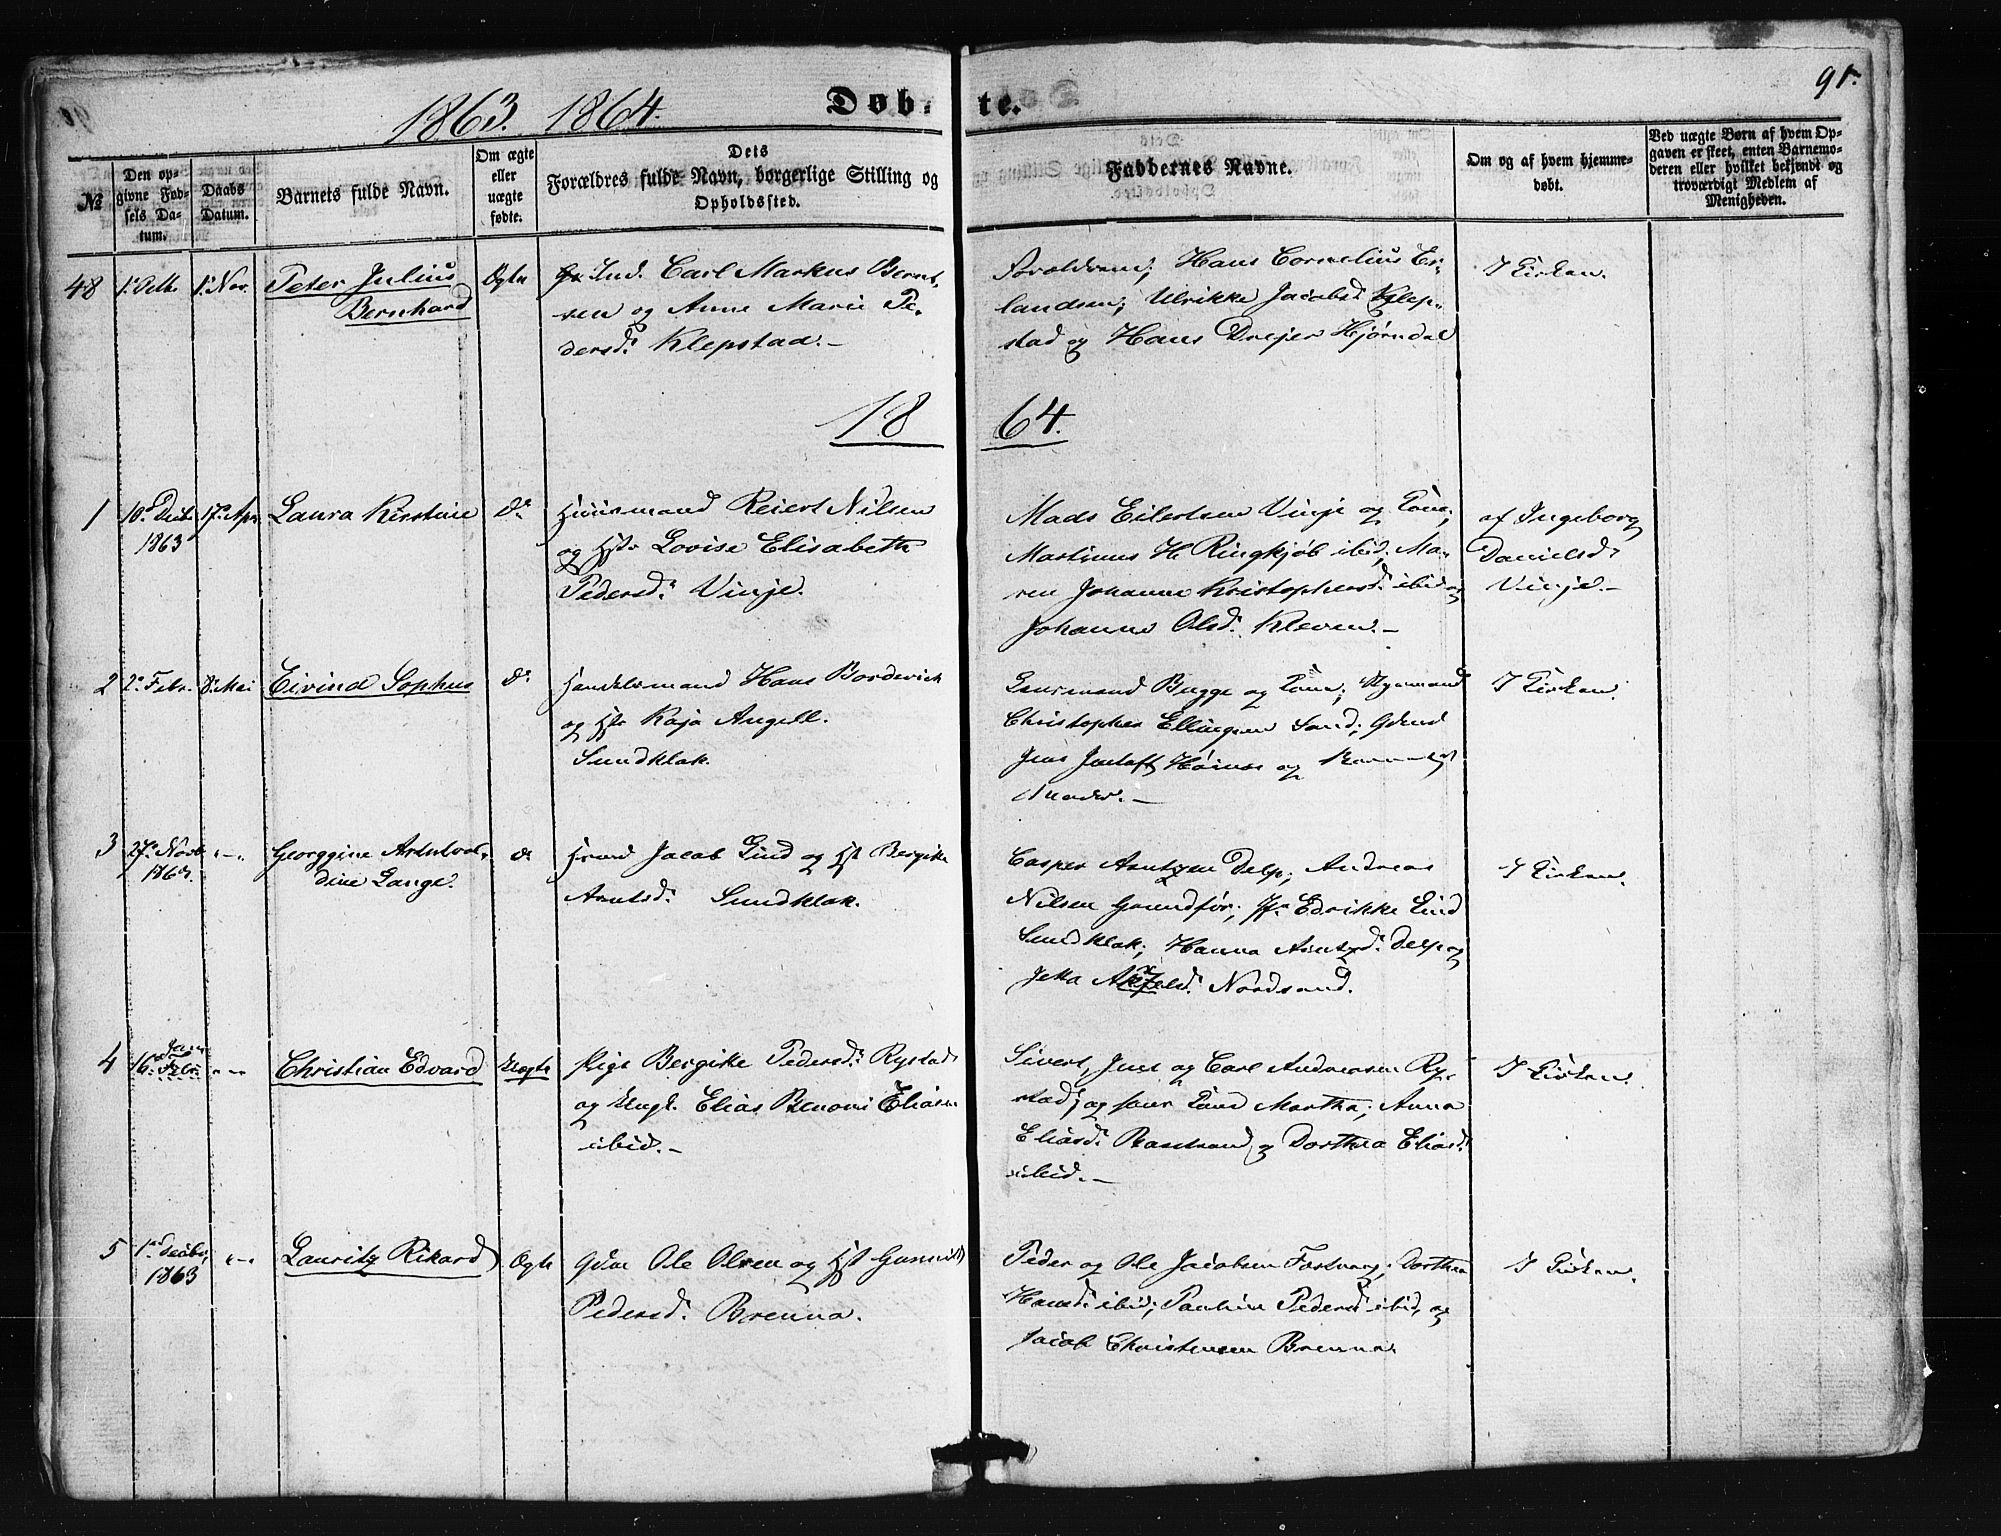 1863. 1864. Døb- te. 91.
№
Den op-
givne Fød-
sels Da-
tum.
Daabs
Datum.
Barnets fulde Navn.
Om ægte
eller
uægte
fødte.
Dets
Forældres fulde Navn, borgerlige Stilling og
Opholdssted.
Faddernes Navne.
Om og af hvem hjemme-
døbt.
Ved uægte Børn af hvem Op-
gaven er skeet, enten Barnemo-
deren eller hvilket bekjendt og
troværdigt Medlem af
Menigheden.
48 1. Octb. 1. Nov. Peter Julius
Bernhard
Ægte
Ind. Carl Markus Bernt-
sen og Anne Marie Pe-
dersd. Klepstad.-
Forældrene; Hans Cornelius Er-
landsen; Ulrikke Jacobsd. Klep-
stad og Hans Drejer Hjørndal
I Kirken.
18 64.
1 10. Decb. 17. Apr. Laura Kirstine
1863
do
Huusmand Reiert Nilsen
og Hst. Lovise Elisabeth
Pedersd. Vinje.
Mads Eilertsen Vinje og Kone;
Martinus H. Ringkjøb ibid, Ma-
ren Johanne Kristophersd. ibid og
Johanne Olsd. Kleven.-
af Ingeborg
Danielsd.
Vinje.-
2 2. Febr. 8. Mai Eivind Sophus
do
Handelsmand Hans Borderich
og Hst. Kaja Angell.
Sundklak.
Lensmand Bugge og Kone;
Christopher Ellingsen Sand;
Jens og
I Kirken.
3 27. Novb. -"-
1863.
Georggine
dine Lange.
do
Jacob Lind og Hst. Bergitte
Arntsd. Sundklak.
Casper Arntzen Delp; Andreas
Nilsen Grundfør; Edrikke Lind
Sundklak; Hanna Arntzd. Delp og
Jetta Nordsand.
I Kirken.
4 16. Jan
Febr. -"-
Christian Edvard
Uægte
Pige Bergitte Pedersd. Rystad
og Ungk. Elias Benoni Eliasen
ibid.-
Sivert, Jens og Carl Andreasen Ry-
stad; og Kone Martha; Anna
Eliasd. og Dorthea Eliasd.
ibid.-
I Kirken.
5 1. Decbr. -"-
1863
Lauritz Rikard
Ægte
Gdm. Ole Olsen og Hst. Gunnild
Pedersd. Brenna.
Peder og Ole Jacobsen Festvaag; Dorthea
Hansd. ibid; Pauline Pedersd. ibid, og
Jacob Christensen Brenna.
I Kirken.